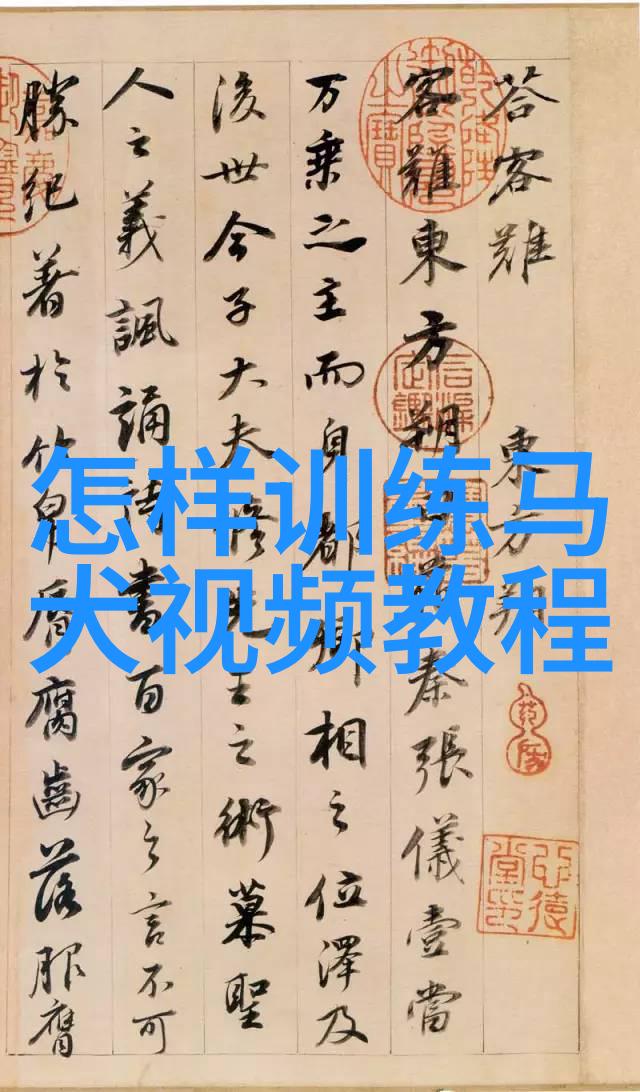 荅客難 東方朔
客難東方朔曰蘇秦張儀壹當
万乗之主而身都卿相之位澤及
後世今子大夫脩先王之術慕聖
人之義諷誦詩書百家之言不可
勝紀著於竹帛脣腐齒落服膺
怎样训练马
犬视频教程